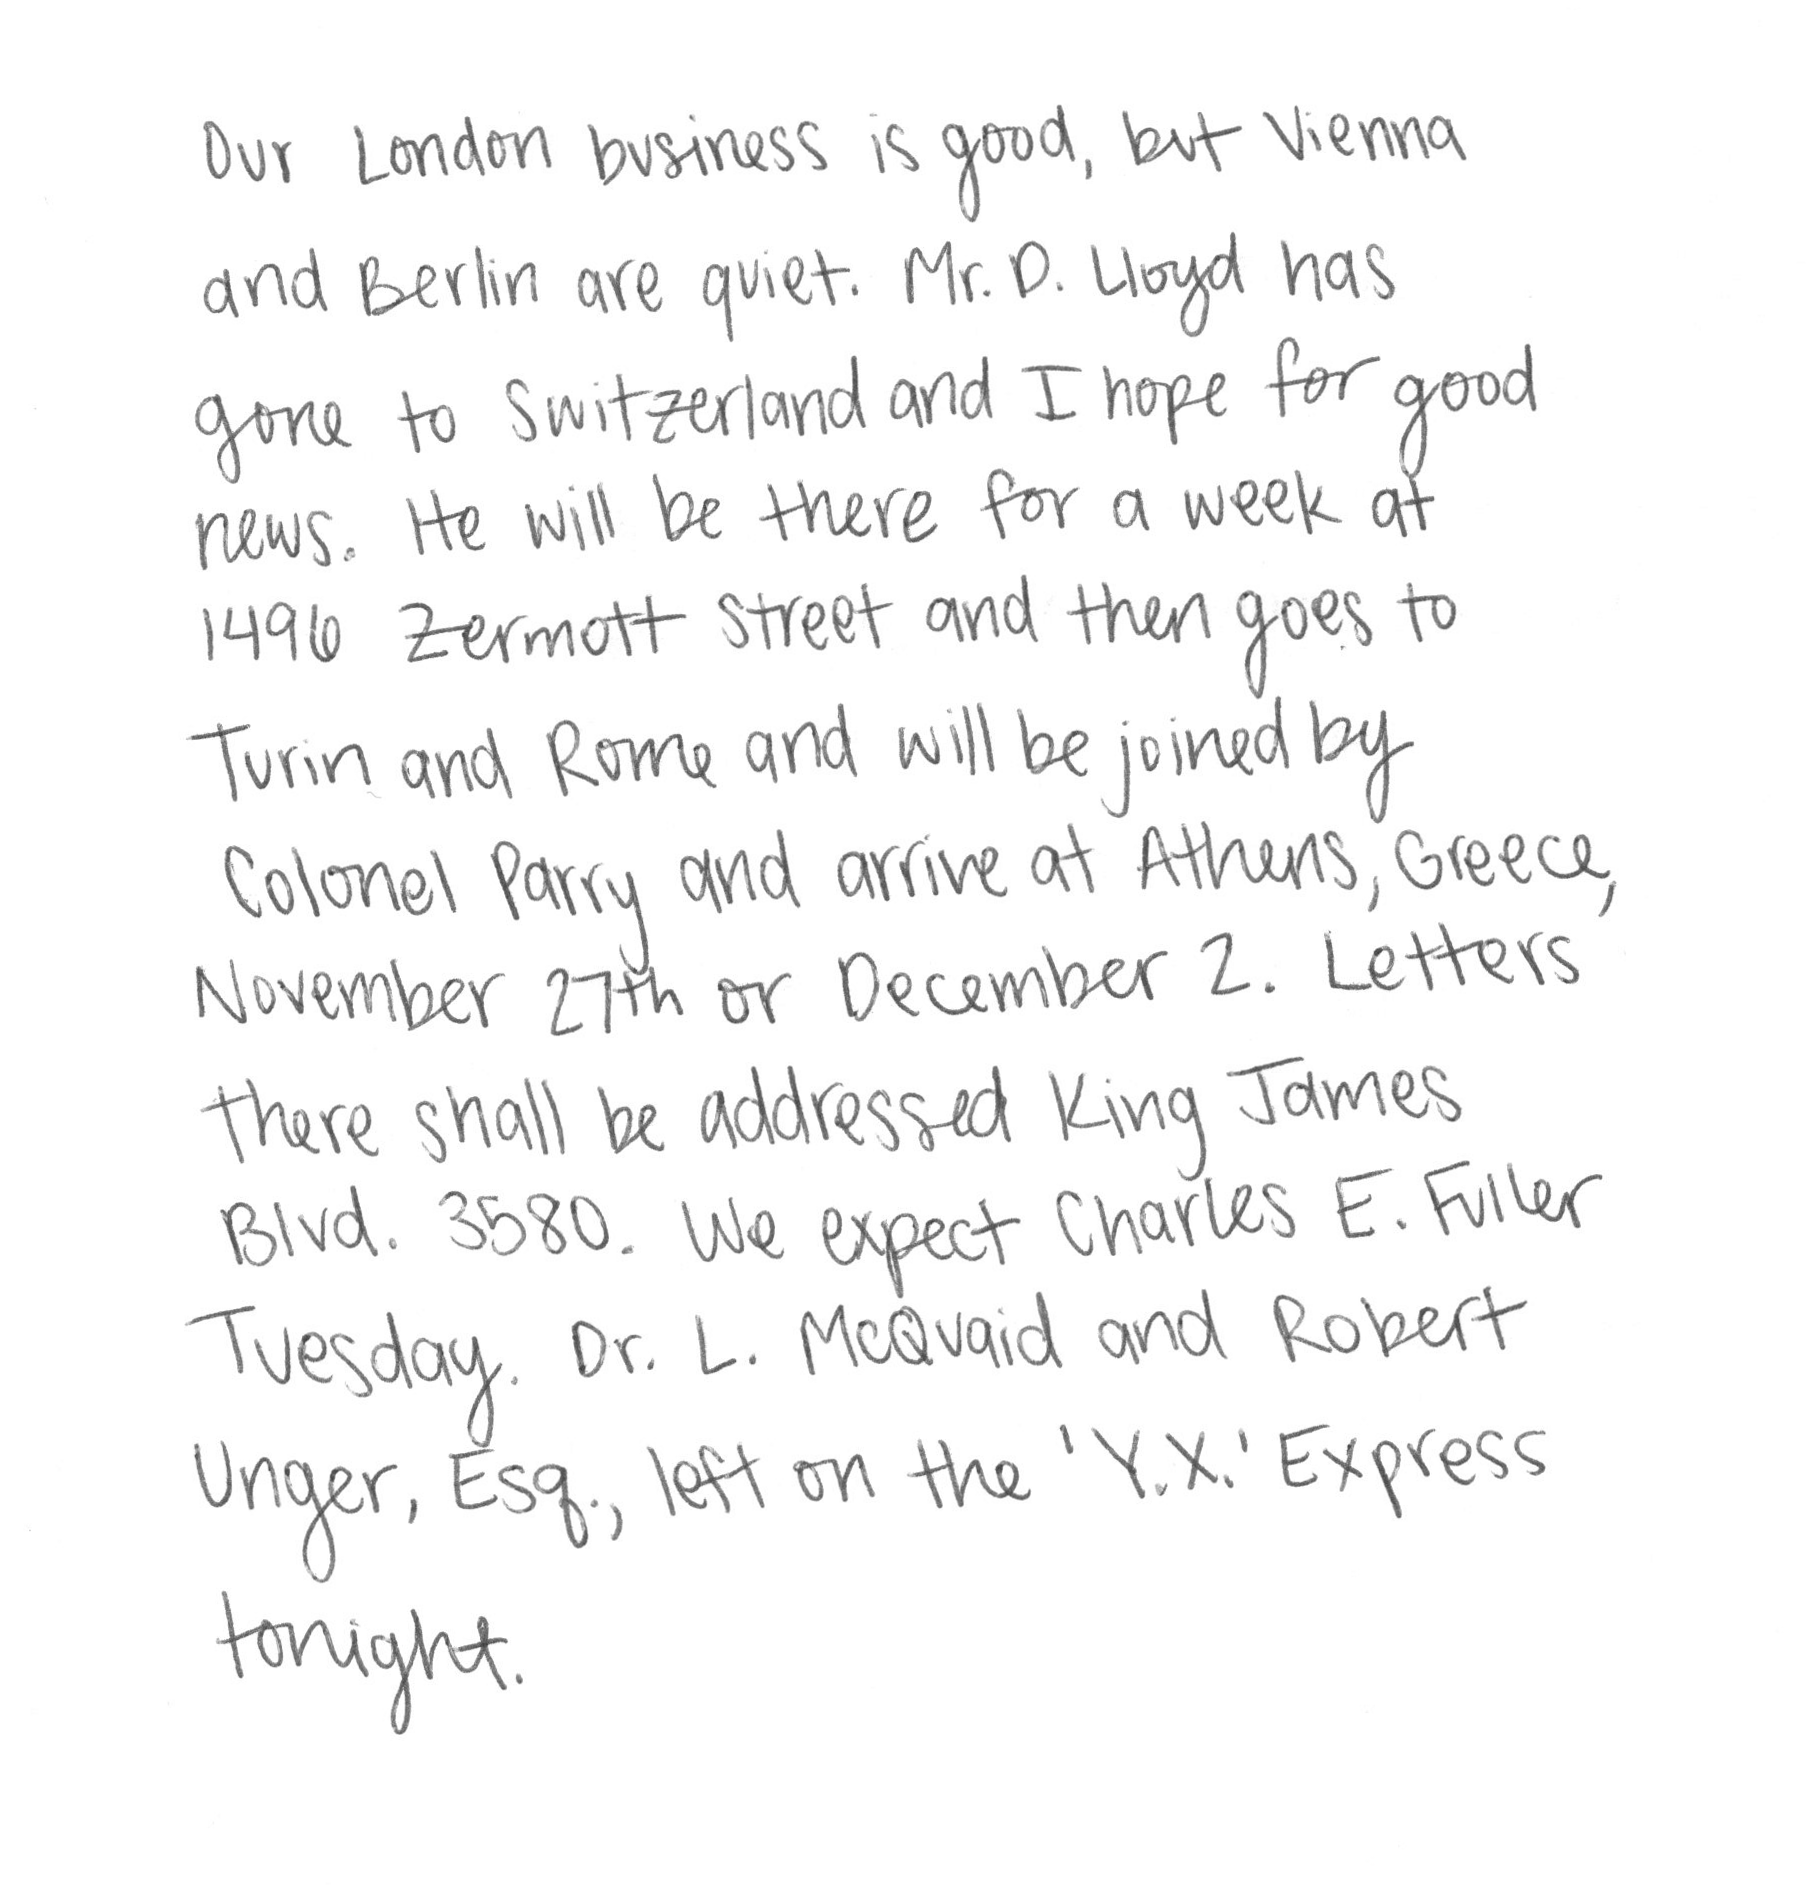 Our London business is good, but Vienna
and Berlin are quiet. Mr. D. Lloyd has
gone to Switzerland and I hope for good
news. He will be there for a week at
1496 Zermott Street and then goes to
Turin and Rome and will be joined by
Colonel Parry and arrive at Athens, Greece,
November 27th or December 2. Letters
there shall be addressed King James
Blvd. 3580. We expect Charles E. Fuller
Tuesday. Dr. L. McQuaid and Robert
Unger, Esq., left on the 'Y.X.' Express
tonight.